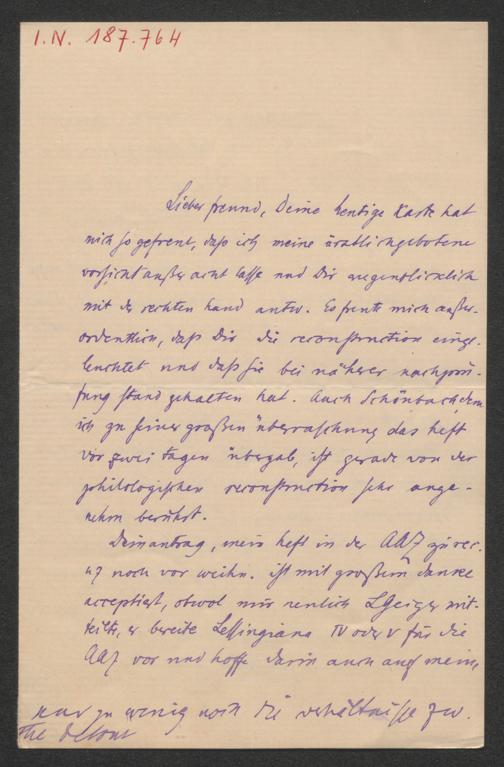 I.N. 187.764
Lieber freund, Deine heutige Karte hat
mich so gefreut, daß ich meine ärztlichgebotene
vorsicht außer acht lasse und Dir augenblicklich
mit der rechten hand antw. Es freute mich außer-
ordentlich, daß Dir die reconstruction einge-
leuchtet und daß sie bei näherer nachprü-
fung stand gehalten hat. Auch Schönbach, dem
ich zu seiner großen überraschung das heft
vor zwei tagen übergab, ist gerade von der
philologischen reconstruction sehr ange-
nehm berührt.
Dein antrag, mein heft in der AAZ zu rec.
uz noch vor weihn. ist mit großem danke
acceptiert, obwol mir neulich LGeiger mit-
teilte, er bereite Lessingiana IV oder V für die
AAZ vor und hoffe darin auch auf mein,
nur zu wenig noch die verhältnisse zw.